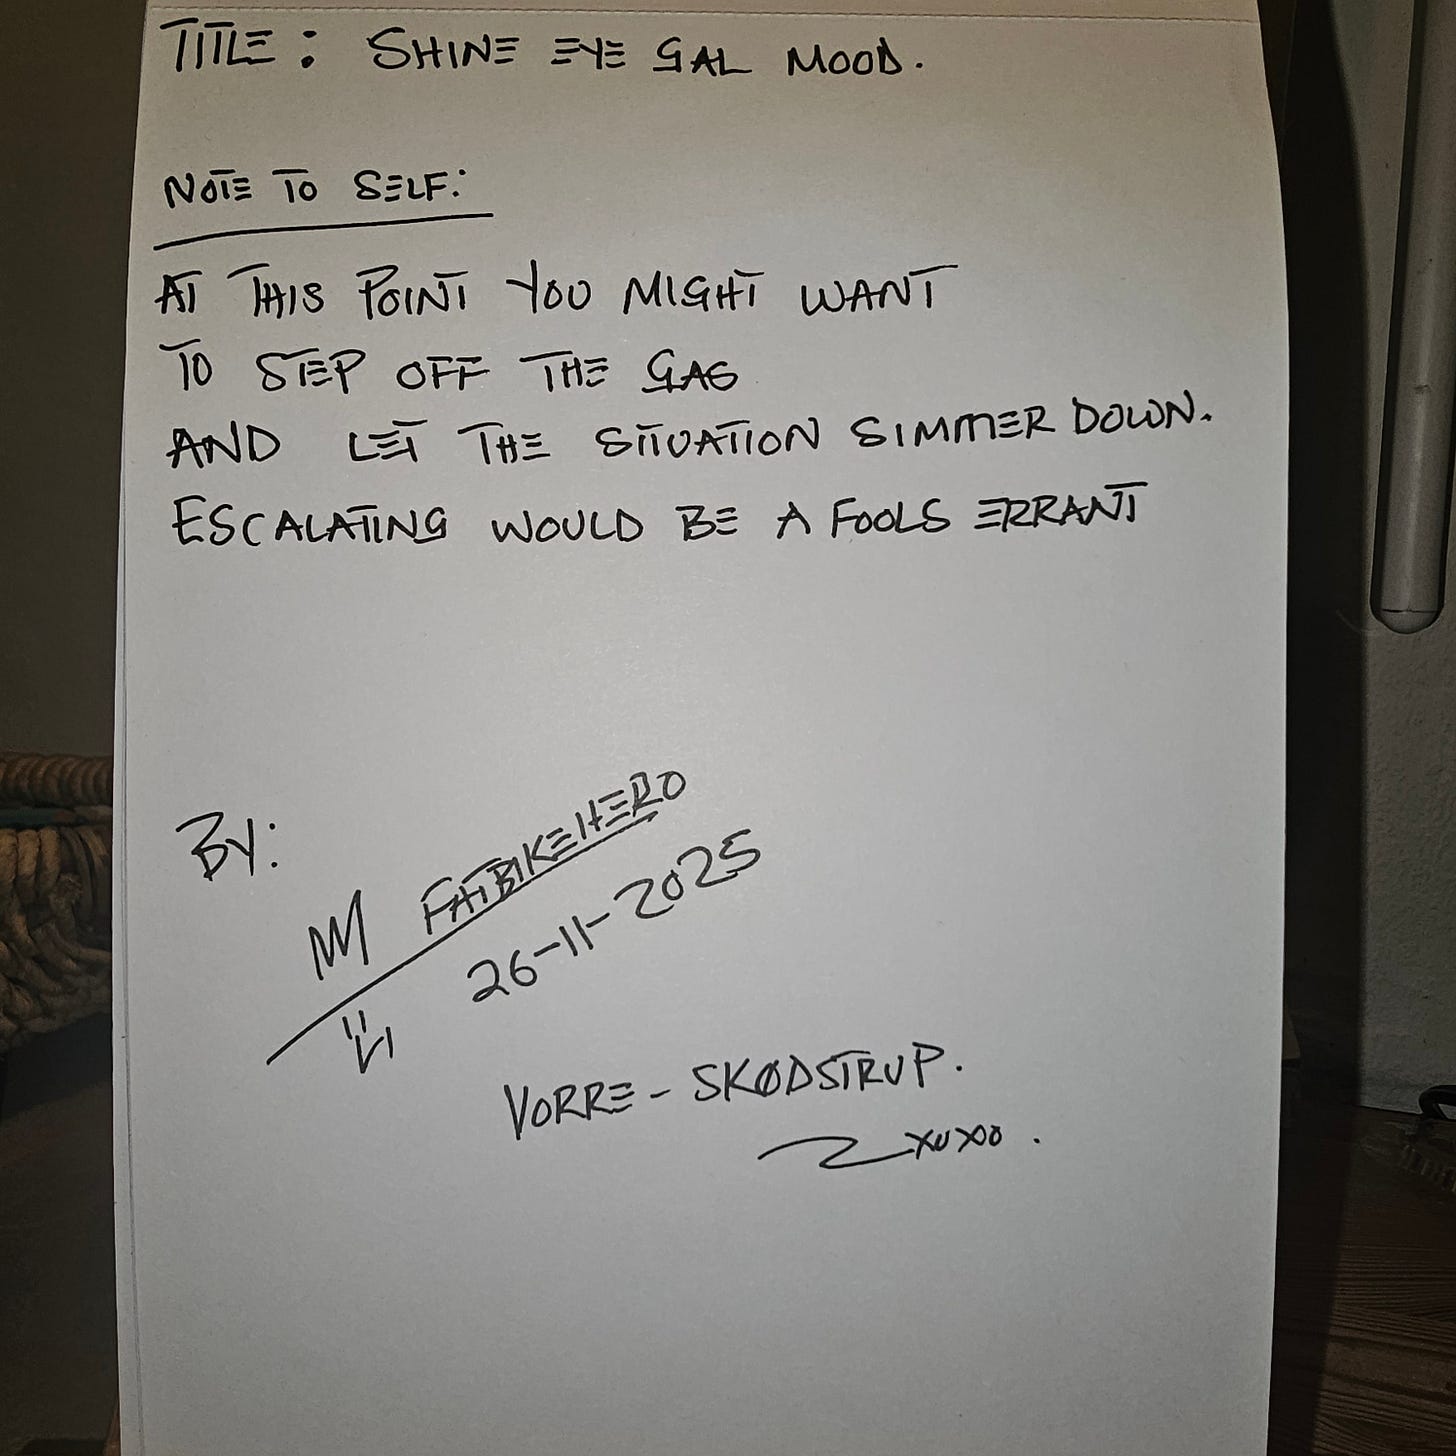 TITLE: SHINE EYE GAL MOOD.
NOTE TO SELF:
AT THIS POINT YOU MIGHT WANT
TO STEP OFF THE GAS
AND LET THE SITUATION SIMMER DOWN.
ESCALATING WOULD BE A FOOLS ERRANT
BY:
FATBIKEHERO
26-11-2025
VORRE - SKØDSTRUP.
XOXO.